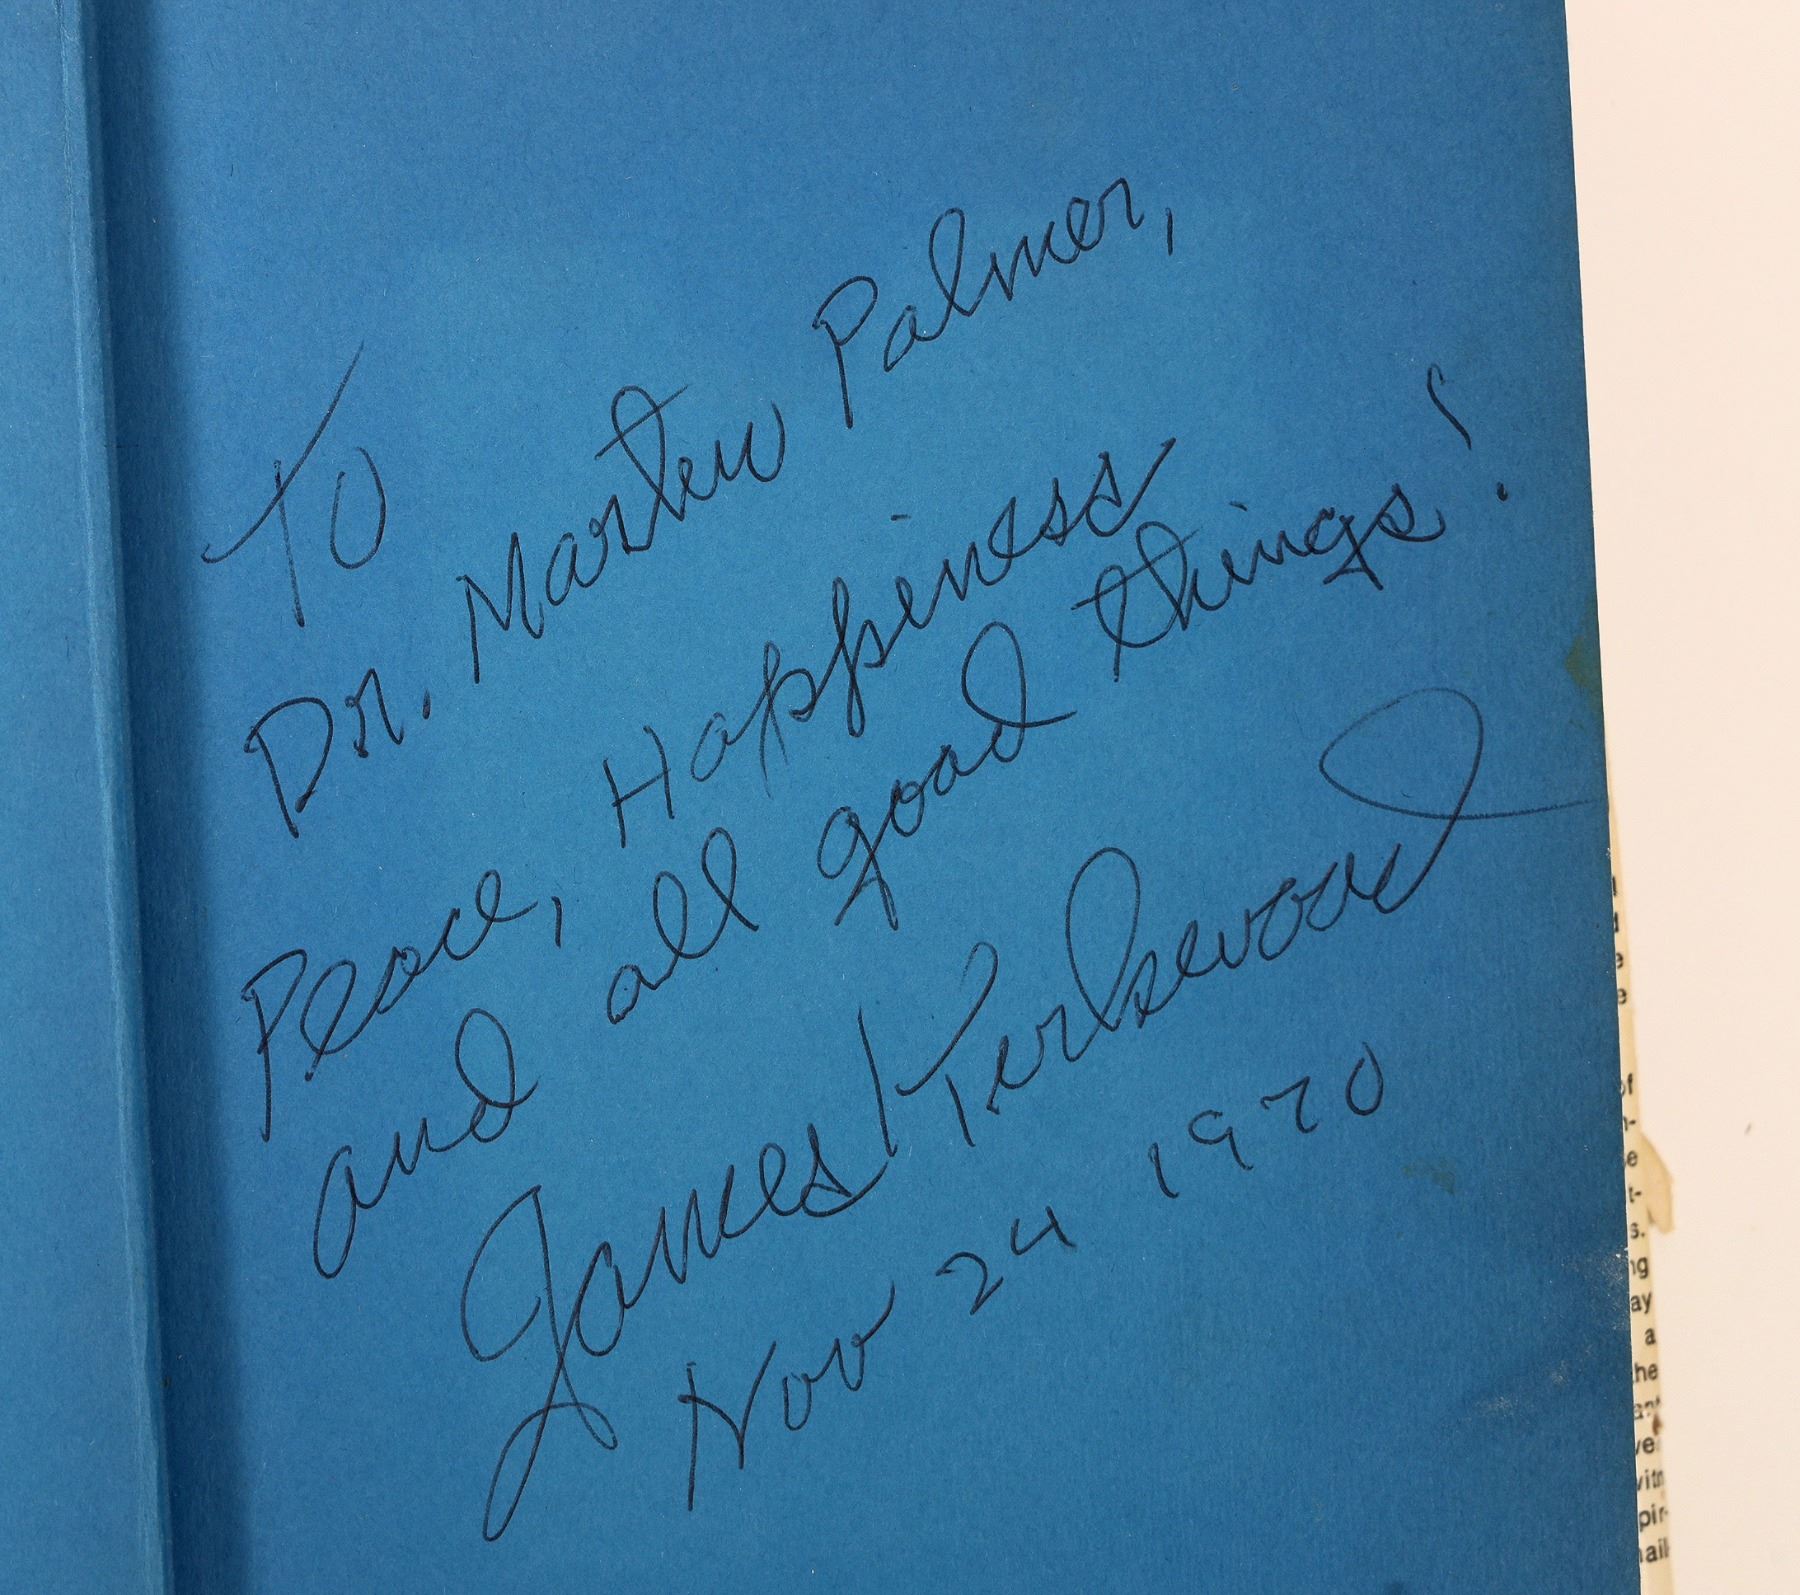 To
Dr. Martin Palmer,
Peace, Happiness
and all good things!
James Kirkwood
Nov 24 1970
of
a